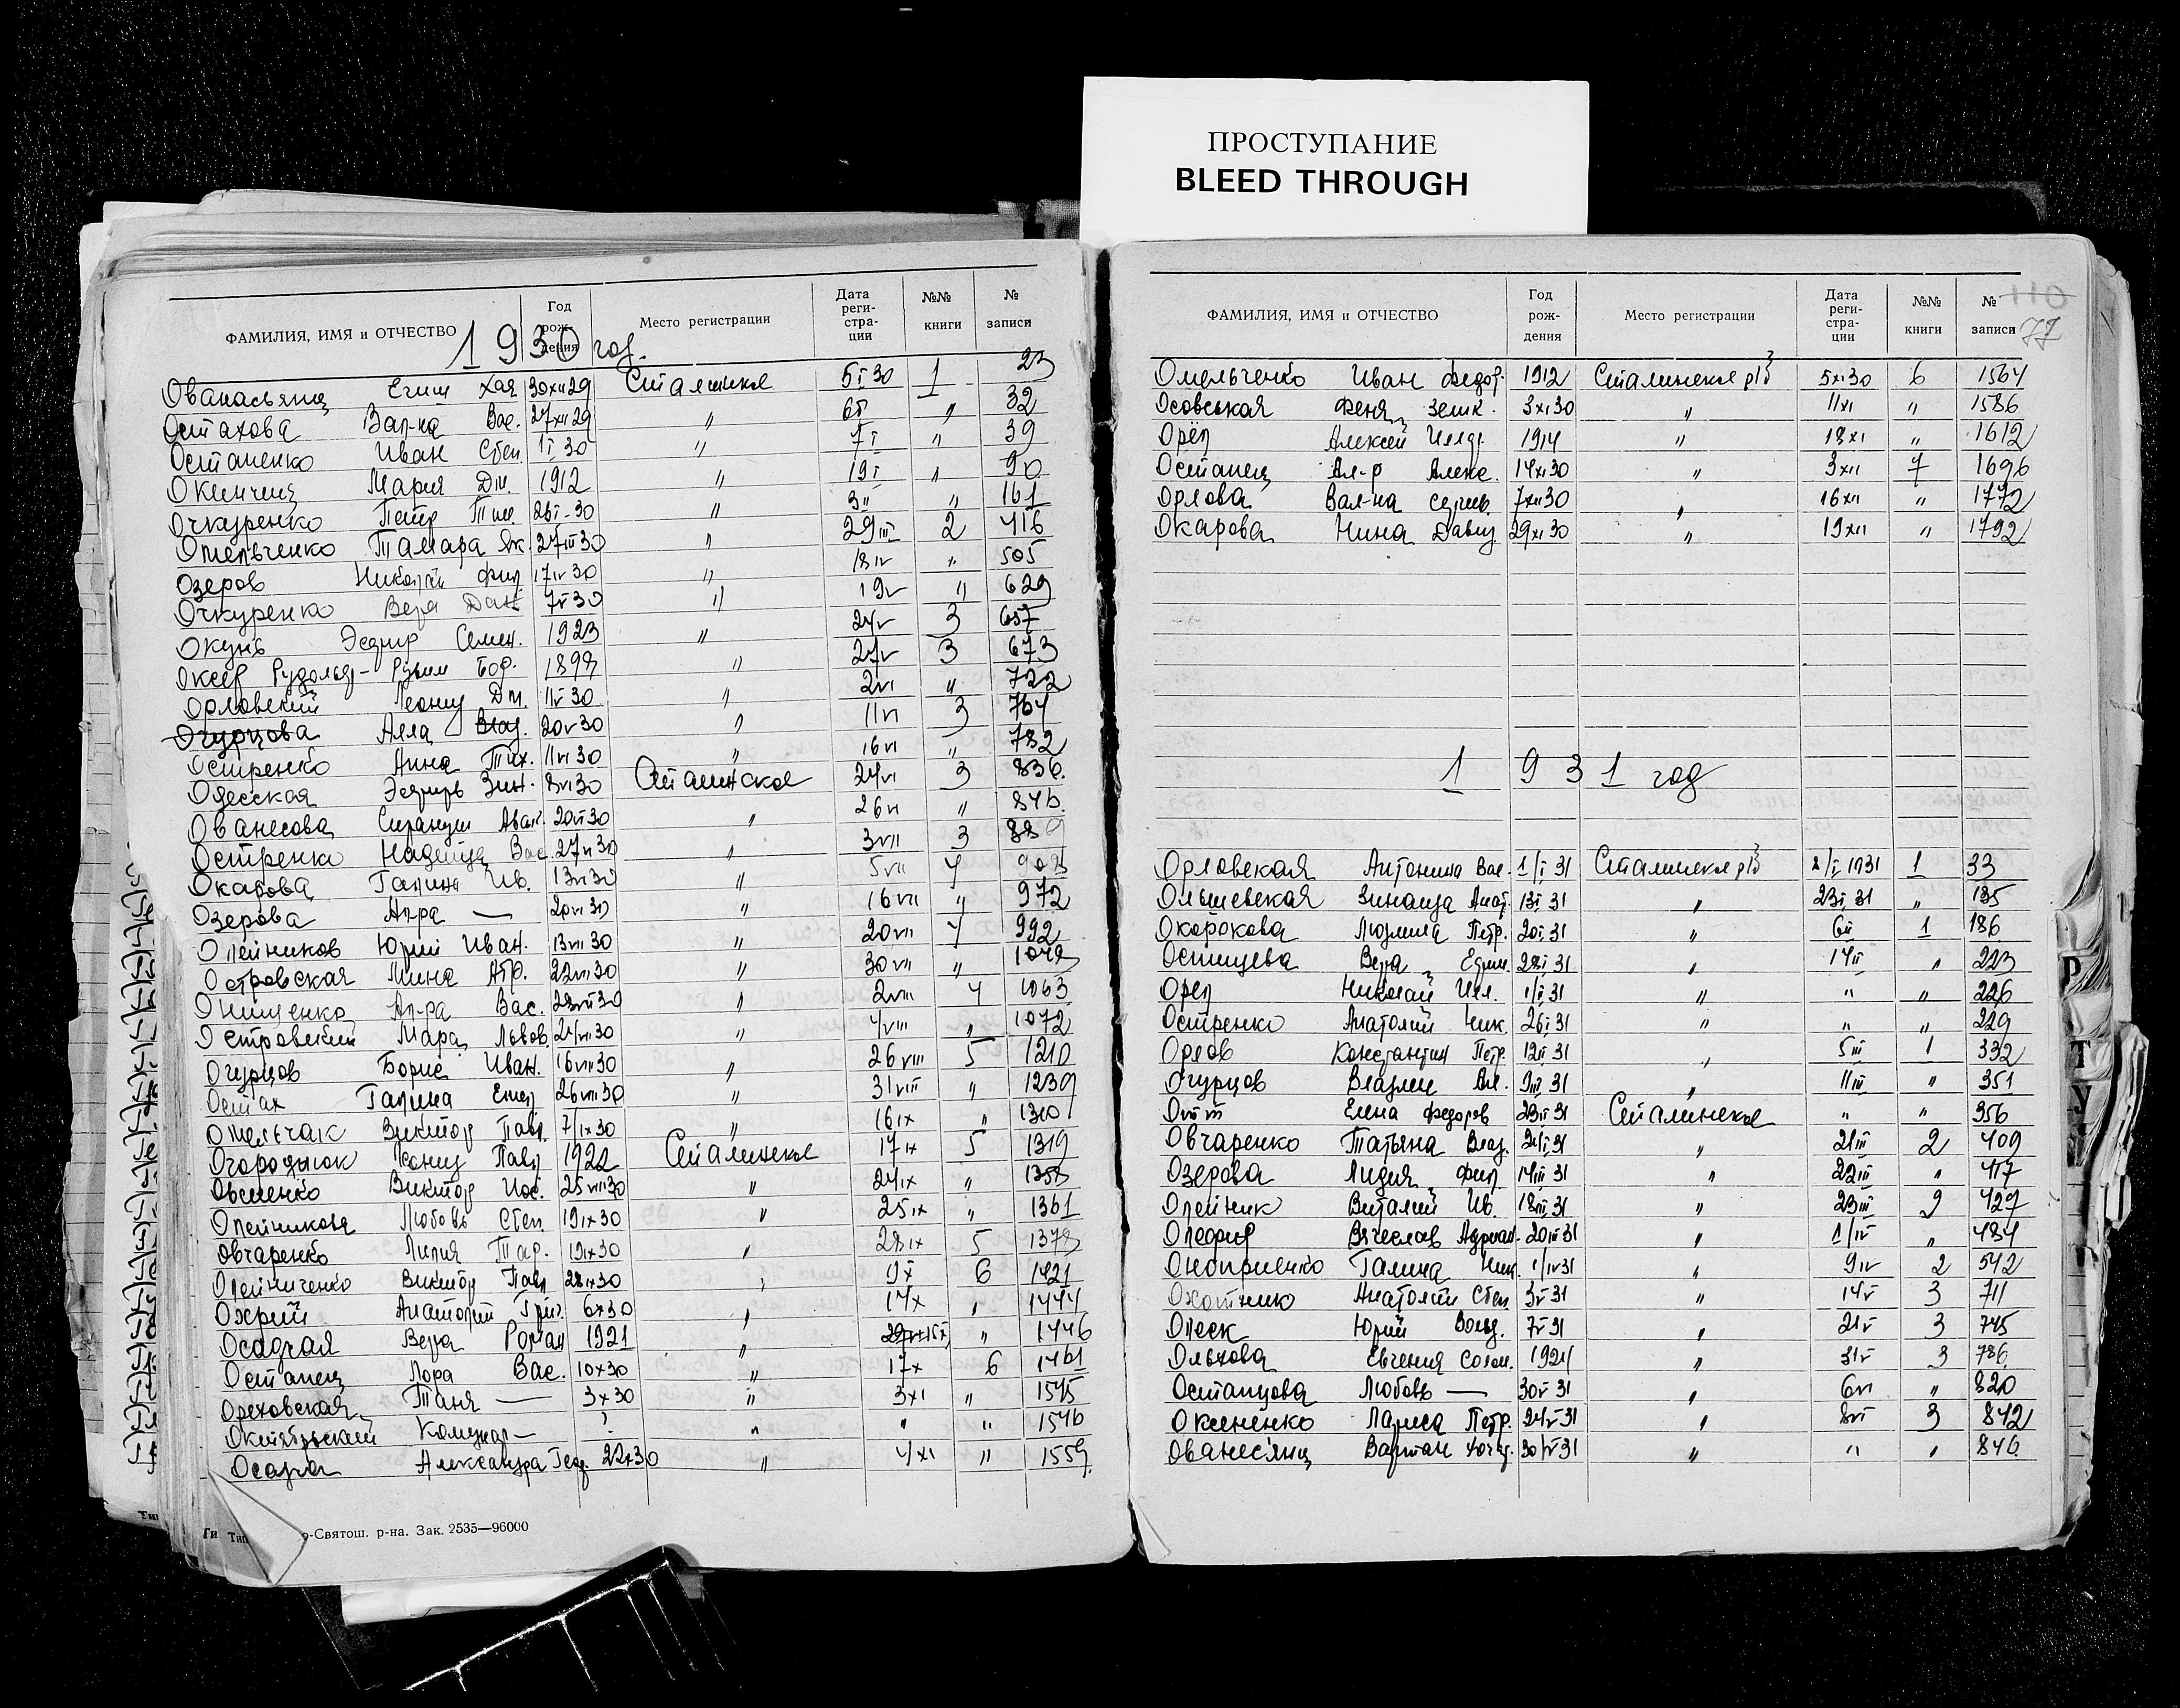 ПРОСТУПАНИЕ
BLEED THROUGH
ФАМИЛИЯ, ИМЯ и ОТЧЕСТВО Год рождения Место регистрации Дата регистрации №№ книги № записи
1930 год.
Ованасьянц Егиш Хая 30XII29 Сталинское 5I30 1 23
Остахова Вал-на Вас. 27XII29 " 6I " 32
Остапенко Иван Степ. 1I30 " 7I " 39
Окинчиц Мария Дм. 1912 " 19I " 90
Очкуренко Петр Тим. 26I-30 " 3II " 161
Омельченко Тамара Як. 27III30 " 29III 2 416
Озеров Николай Фил. 17IV30 " 18IV " 505
Очкуренко Вера Дан 7V30 " 19V " 629
Окунь Эсфир Семен. 1923 " 24V 3 657
Оксер Рудольф- Боф. " 27V 3 673
Орловский Леонид Дм. 11V30 " 2VI " 722
Огурцова Алла Влад. 20V30 " 11VI 3 764
Остренко Анна Тих. 11VI30 " 16VI " 782
Одесская Эсфирь Зин. 8VI30 Сталинское 24VI 3 836.
Ованесова Сирануш Аван. 20VI30 " 26VI " 846.
Остренко Надежда Вас. 27VI30 " 3VII 3 889
Окарова Галина Ив. 13VI30 " 5VII 4
Озерова Ал-ра — 20VI30 " 16VII " 972
Олейников Юрий Иван. 13VII30 " 20VII 4 992
Островская Мина Абр. 22VII30 " 30VII "
Онищенко Ал-ра Вас. 23VII30 " 2VIII 4 1063
Островский Марат Львов. 24VII30 " 4VIII " 1072
Огурцов Борис Иван. 16VIII30 " 26VIII 5 1210
Остах Галина Емел. 26VIII30 " 31VIII " 1239
Омельчак Виктор Павл. 7/IX30 " 16IX " 1310
Огородник Леонид Павл 1922 Сталинское 17IX 5 1319
Овсиенко Виктор Иос. 25VIII30 " 24IX " 1353
Олейникова Любовь Степ. 19IX30 " 25IX " 1361
Овчаренко Лилия Тар. 19IX30 " 28IX 5 1378
Олейниченко Виктор Павл 28IX30 " 9X 6 1421
Охрий Анатолий Григ. 6X30 " 14X " 1444
Осадчая Вера Роман 1921 " 15X " 1446
Остапец Лора Вас. 10X30 " 17X 6 1461
Ореховская Таня — 3X30 " 3XI " 1545
Октябрьский Комунар — ? " " " 1546
Осадча Александра Геор. 22X30 " 4XI " 1559.
о-Святош. р-на. Зак. 2535—96000
ФАМИЛИЯ, ИМЯ и ОТЧЕСТВО Год рождения Место регистрации Дата регистрации №№ книги № записи
110
77
Омельченко Иван Федор. 1912 Сталинское р/б 5XI30 6 1564
Осовськая Феня Зелик. 3XI30 " 11XI " 1586
Орёл Алексей Иллар. 1914 " 18XI " 1612
Остапец Ал-р Алекс. 14XI30 " 3XII 7 1696
Орлова Вал-на Сергив. 7XII30 " 16XII " 1772
Окарова Нина Давид. 29XI30 " 19XII " 1792
1931 год
Орловская Антонина Вас. 1/I31 Сталинское р/б 2/I1931 1 33
Ольшевская Зинаида Анат. 13I31 " 23I31 " 135
Окорокова Людмила Петр. 20I31 " 6II 1 186
Остищева Вера Ефим. 28I31 " 14II " 223
Орел Николай Илл. 1/I31 " " " 226
Остренко Анатолий Ник. 26I31 " " " 229
Орлов Константин Петр. 12II31 " 5III 1 332
Огурцов Владлен Ал. 9III31 " 11III " 351
Отт Елена Федоров 23II31 Сталинское " " 356
Овчаренко Татьяна Влад. 24I31 " 21III 2 409
Озерова Лидия Фил. 14III31 " 22III " 417
Олейник Виталий Ив. 18III31 " 23III 2 427
Олефир Вячеслав Адриан. 20III31 " 1/IV " 484
Оноприенко Галина Ник. 1/IV31 " 9IV 2 542
Охотнико Анатолий Степ. 3V31 " 14V 3 711
Олеск Юрий Вольд. 7V31 " 21V 3 745
Ольхова Евгения Солом. 1924 " 31V 3 786
Остапцова Любовь — 30V31 " 6VI " 820
Оксененко Лариса Петр. 24V31 " 8VI 3 842
Ованесянц Вартан Хачад. 30/V31 " " " 846